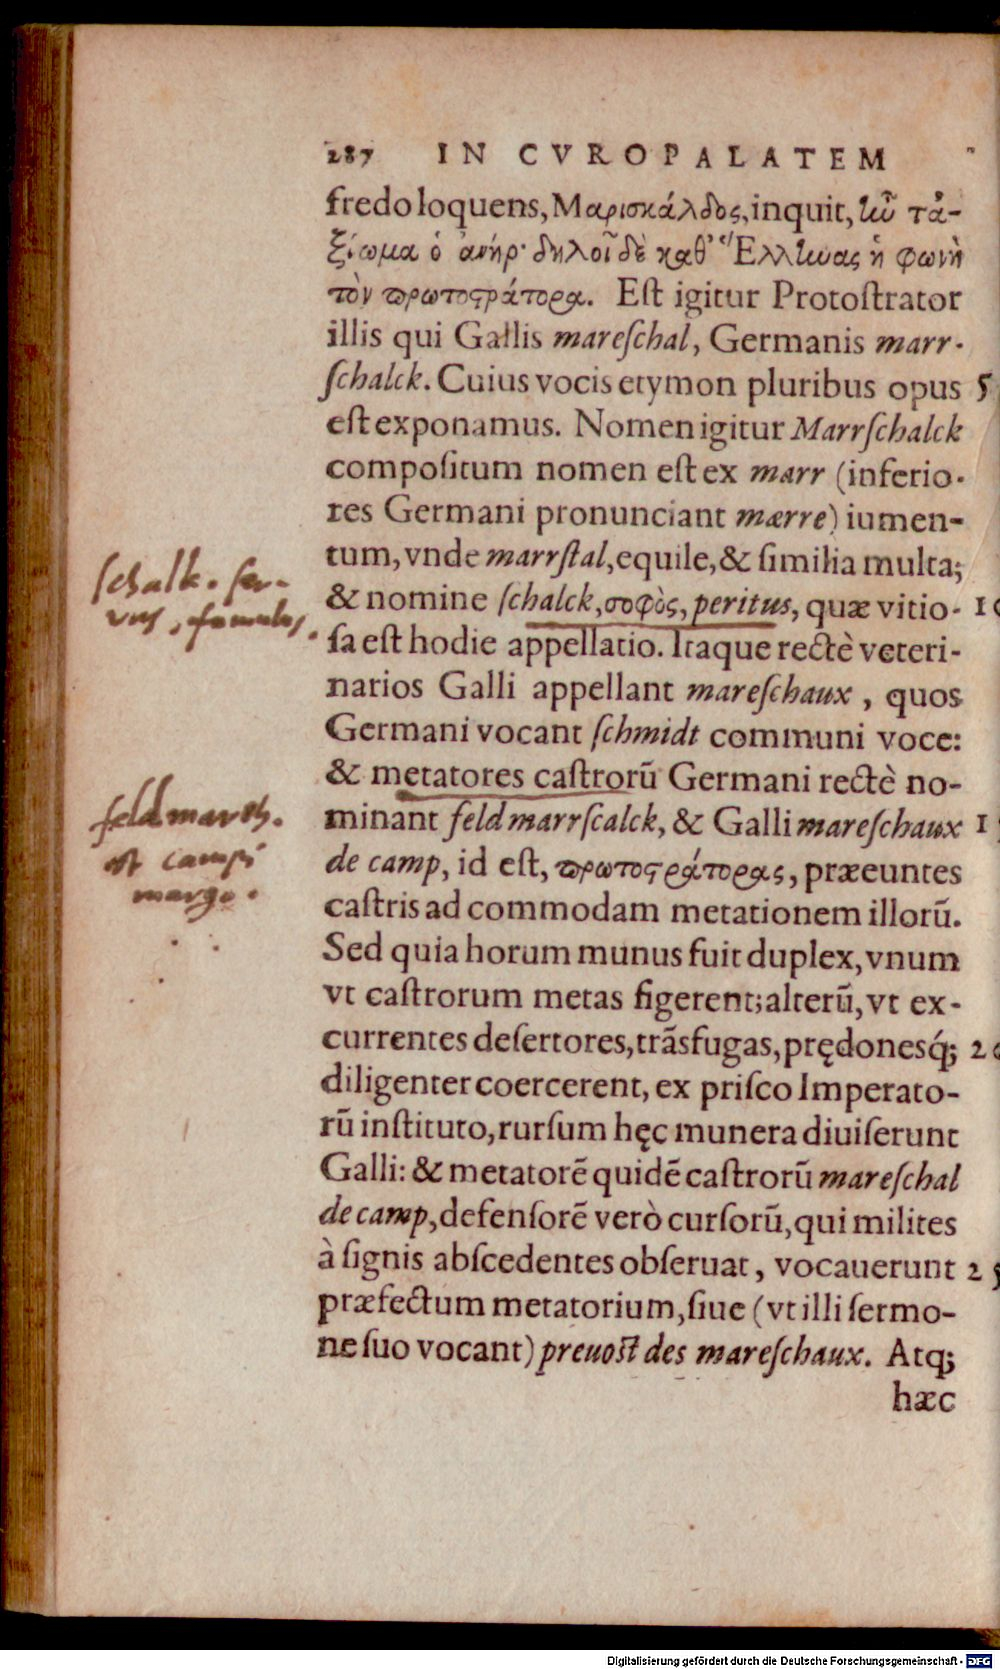 287 IN CVROPALATEM
fredo loquens, Μαρισκάλδος, inquit, ἰῶ τἀ-
ξίωμα ὁ ἀνήρ· δηλοῖ δὲ καθ' Ἕλλίωας ἡ φωνὴ
τὸν πρωτοϛράτορα. Est igitur Protostrator
illis qui Gallis mareſchal, Germanis marr-
ſchalck. Cuius vocis etymon pluribus opus 5
eſt exponamus. Nomen igitur Marrſchalck
compoſitum nomen eſt ex marr (inferio-
res Germani pronunciant mærre) iumen-
tum, vnde marrſtal, equile, & ſimilia multa;
& nomine ſchalck, σοφὸς, peritus, quæ vitio- 10
ſa eſt hodie appellatio. Itaque rectè veteri-
narios Galli appellant mareſchaux, quos
Germani vocant ſchmidt communi voce:
& metatores caſtrorũ Germani rectè no-
minant feld marrſcalck, & Galli mareſchaux 1
de camp, id eſt, πρωτοϛράτορας, præeuntes
caſtris ad commodam metationem illorũ.
Sed quia horum munus fuit duplex, vnum
vt caſtrorum metas figerent; alterũ, vt ex-
currentes deſertores, trãsfugas, prędonesq́; 20
diligenter coercerent, ex priſco Imperato-
rũ inſtituto, rurſum hęc munera diuiſerunt
Galli: & metatorẽ quidẽ caſtrorũ mareſchal
de camp, defenſorẽ verò curſorũ, qui milites
à ſignis abſcedentes obſeruat, vocauerunt 25
præfectum metatorium, ſiue (vt illi ſermo-
ne ſuo vocant) preuoſt des mareſchaux. Atq;
hæc
ſchalk. ſer-
vus, famulus.
feldmarsh.
est campi
margo.
Digitalisierung gefördert durch die Deutsche Forschungsgemeinschaft - DFG